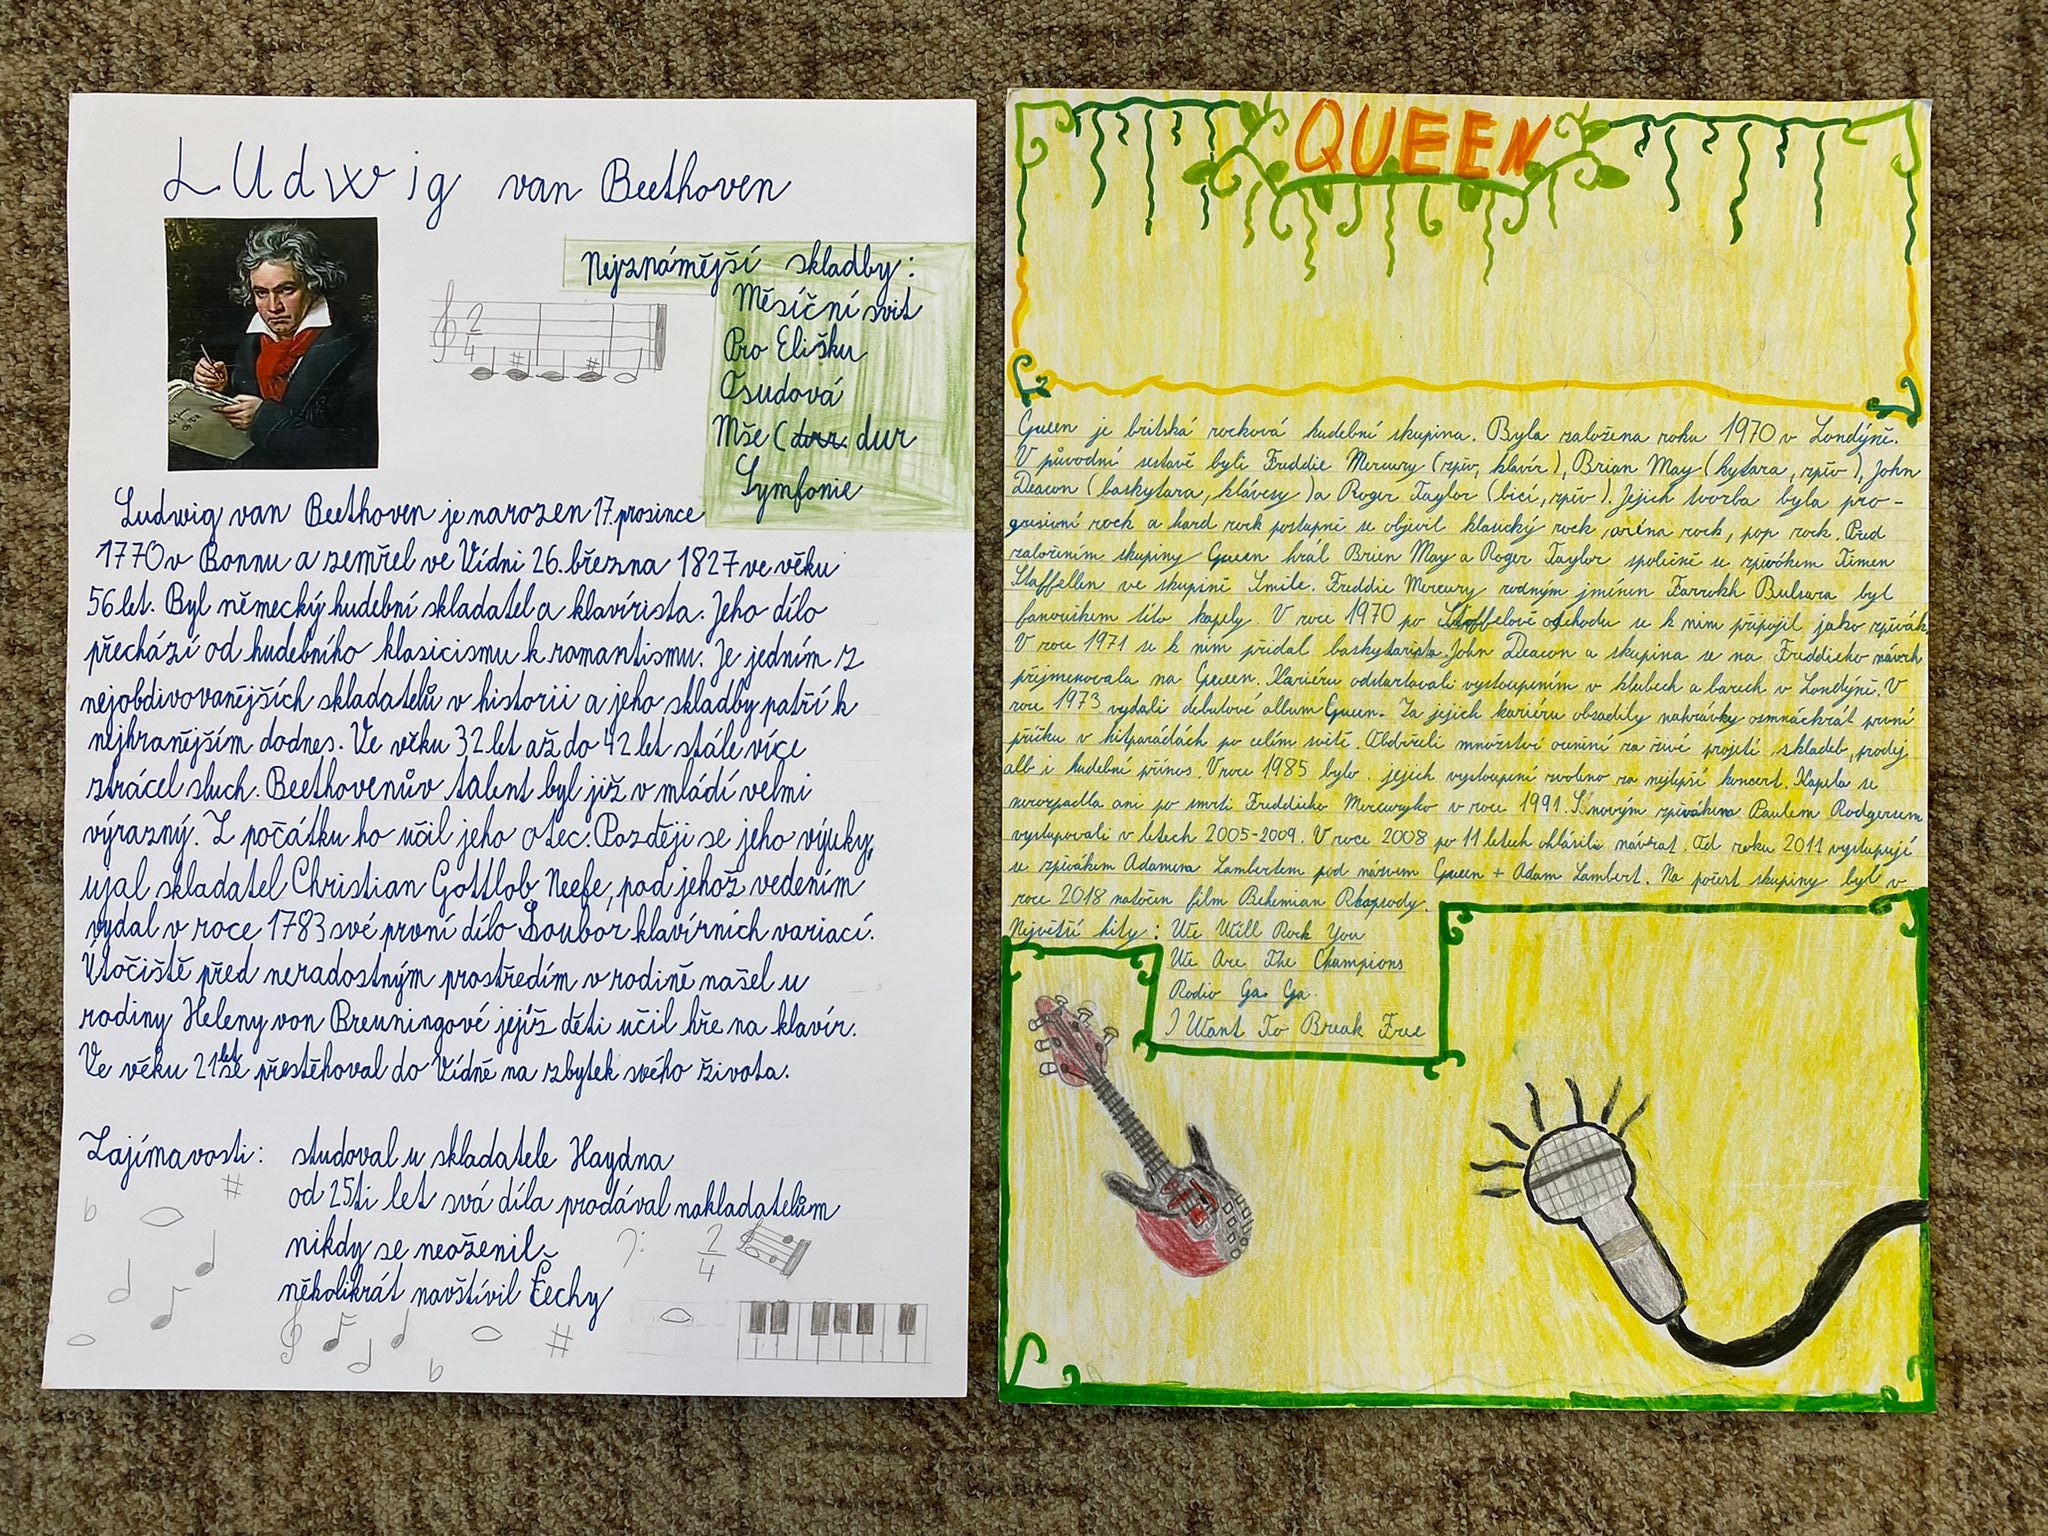 LUdwig van Beethoven
Nejznámější skladby:
Měsíční svit
Pro Elišku
Osudová
Mše ( dur
Symfonie
2
4
Ludwig van Beethoven je narozen 17. prosince
1770 v Bonnu a zemřel ve Vídni 26. března 1827 ve věku
56 let. Byl německý hudební skladatel a klavírista. Jeho dílo
přechází od hudebního klasicismu k romantismu. Je jedním z
nejobdivovanějších skladatelů v historii a jeho skladby patří k
nejhranějším dodnes. Ve věku 32 let až do 42 let stále více
ztrácel sluch. Beethovenův talent byl již v mládí velmi
výrazný. Z počátku ho učil jeho otec. Později se jeho výuky,
ujal skladatel Christian Gottlob Neefe, pod jehož vedením
vydal v roce 1783 své první dílo Soubor klavírních variací.
Útočiště před neradostným prostředím v rodině našel u
rodiny Heleny von Breuningové jejíž děti učil hře na klavír.
Ve věku 21 let se přestěhoval do Vídně na zbytek svého života.
Zajímavosti: studoval u skladatele Haydna
od 25ti let svá díla prodával nakladatelům
nikdy se neoženil
několikrát navštívil Čechy
2
4
QUEEN
Queen je britská rocková hudební skupina. Byla založena roku 1970 v Londýně.
V původní sestavě byli Freddie Mercury (zpěv, klavír), Brian May (kytara, zpěv), John
Deacon (baskytara, klávesy) a Roger Taylor (bicí, zpěv). Jejich tvorba byla pro-
gresivní rock a hard rock postupně se objevil klasický rock, aréna rock, pop rock. Před
založením skupiny Queen hrál Brien May a Roger Taylor společně se zpěvákem Timem
Staffellem ve skupině Smile. Freddie Mercury rodným jménem Farrokh Bulsara byl
fanouškem této kapely. V roce 1970 po Staffelově odchodu se k nim připojil jako zpěvák.
V roce 1971 se k ním přidal baskytarista John Deacon a skupina se na Freddieho návrh
přejmenovala na Queen. Kariéru odstartovali vystoupením v klubech a barech v Londýně. V
roce 1973 vydali debutové album Queen. Za jejich kariéru obsadily nahrávky osmnáctkrát první
příčku v hitparádách po celím světě. Obdrželi množství ocenění za živé projetí skladeb, prodej
alb i hudební přínos. V roce 1985 bylo jejich vystoupení zvoleno za nejlepší koncert. Kapela se
nerozpadla ani po smrti Freddieho Mercuryho v roce 1991. S novým zpěvákem Paulem Rodgersem
vystupovali v letech 2005-2009. V roce 2008 po 11 letech ohlásili návrat. Od roku 2011 vystupují
se zpěvákem Adamem Lambertem pod názvem Queen + Adam Lambert. Na počest skupiny byl v
roce 2018 natočen film Bohemian Rhapsody.
Největší hity: We Will Rock You
We Are The Champions
Radio Ga Ga
I Want To Break Free